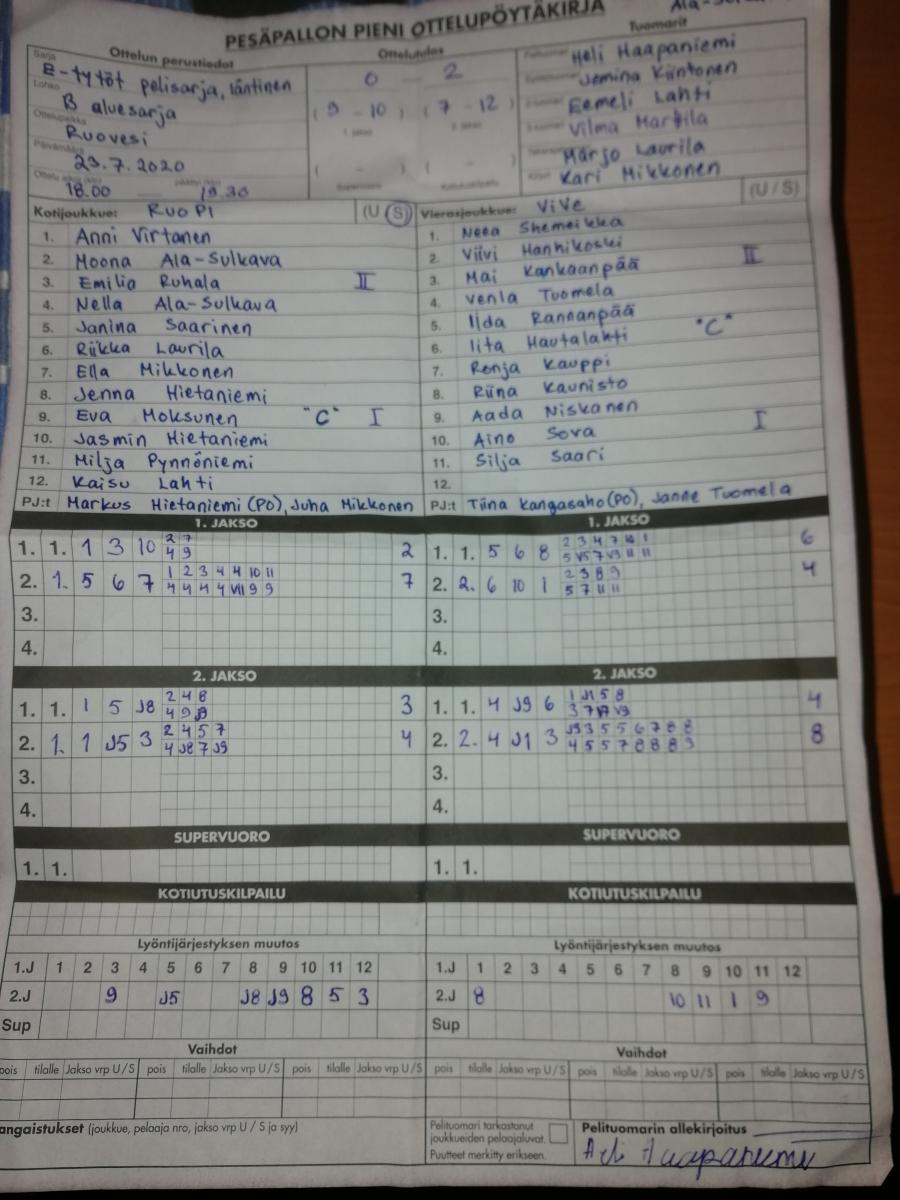 PESÄPALLON PIENI OTTELUPÖYTÄKIRJA
Ottelun perustiedot
Ottelutulos
Tuomarit
Sarja
E-tytöt pelisarja, läntinen
0 2
Heli Haapaniemi
Lohko
B aluesarja
(9 - 10) (7 - 12)
Jemina Kiintonen
Ottelupaikka
Ruovesi
Eemeli Lahti
Päivämäärä
23.7.2020
Vilma Markila
(-) (-)
Marjo Laurila
18.00 19.30
Kari Mikkonen
Kotijoukkue: RuoPi (U S)
1. Anni Virtanen
2. Moona Ala-Sulkava
3. Emilia Ruhala II
4. Nella Ala-Sulkava
5. Janina Saarinen
6. Riikka Laurila
7. Ella Mikkonen
8. Jenna Hietaniemi
9. Eva Moksunen "C" I
10. Jasmin Hietaniemi
11. Milja Pynnöniemi
12. Kaisu Lahti
PJ:t Markus Hietaniemi (PO), Juha Mikkonen
Vierasjoukkue: ViVe (U / S)
1. Neea Shemeikka
2. Viivi Hanhikoski II
3. Mai Kankaanpää
4. Venla Tuomela
5. Ilda Rannanpää
6. Iita Hautalahti "C"
7. Ronja Kauppi
8. Riina Kaunisto
9. Aada Niskanen
10. Aino Sova I
11. Silja Saari
12.
PJ:t Tiina Kangasaho (PO), Janne Tuomela
1. JAKSO
1. 1. 1 3 10 2 7 2
4 9
2. 1. 5 6 7 1 2 3 4 4 10 11 7
4 4 4 4 VII 9 9
3.
4.
1. JAKSO
1. 1. 5 6 8 2 3 4 7 10 1 6
5 V5 7 V9 11 11
2. 2. 6 10 1 2 3 8 9 4
5 7 11 11
3.
4.
2. JAKSO
1. 1. 1 5 J8 2 4 8 3
4 9 J9
2. 1. 1 J5 3 2 4 5 7 4
4 J8 7 J9
3.
4.
2. JAKSO
1. 1. 4 J9 6 1 J1 5 8 4
3 7 V9
2. 2. 4 J1 3 J9 3 5 5 6 7 8 8 8
4 5 5 7 8 8 8 9
3.
4.
SUPERVUORO
1. 1.
SUPERVUORO
1. 1.
KOTIUTUSKILPAILU
KOTIUTUSKILPAILU
Lyöntijärjestyksen muutos
1.J 1 2 3 4 5 6 7 8 9 10 11 12
2.J 9 J5 J8 J9 8 5 3
Sup
Lyöntijärjestyksen muutos
1.J 1 2 3 4 5 6 7 8 9 10 11 12
2.J 8 10 11 1 9
Sup
Vaihdot
pois tilalle Jakso vrp U / S pois tilalle Jakso vrp U / S pois tilalle Jakso vrp U / S
Vaihdot
pois tilalle Jakso vrp U / S pois tilalle Jakso vrp U / S pois tilalle Jakso vrp U / S
angaistukset (joukkue, pelaaja nro, jakso vrp U / S ja syy)
Pelituomari tarkastanut
joukkueiden pelaajaluvat.
Puutteet merkitty erikseen.
Pelituomarin allekirjoitus
Heli Haapaniemi